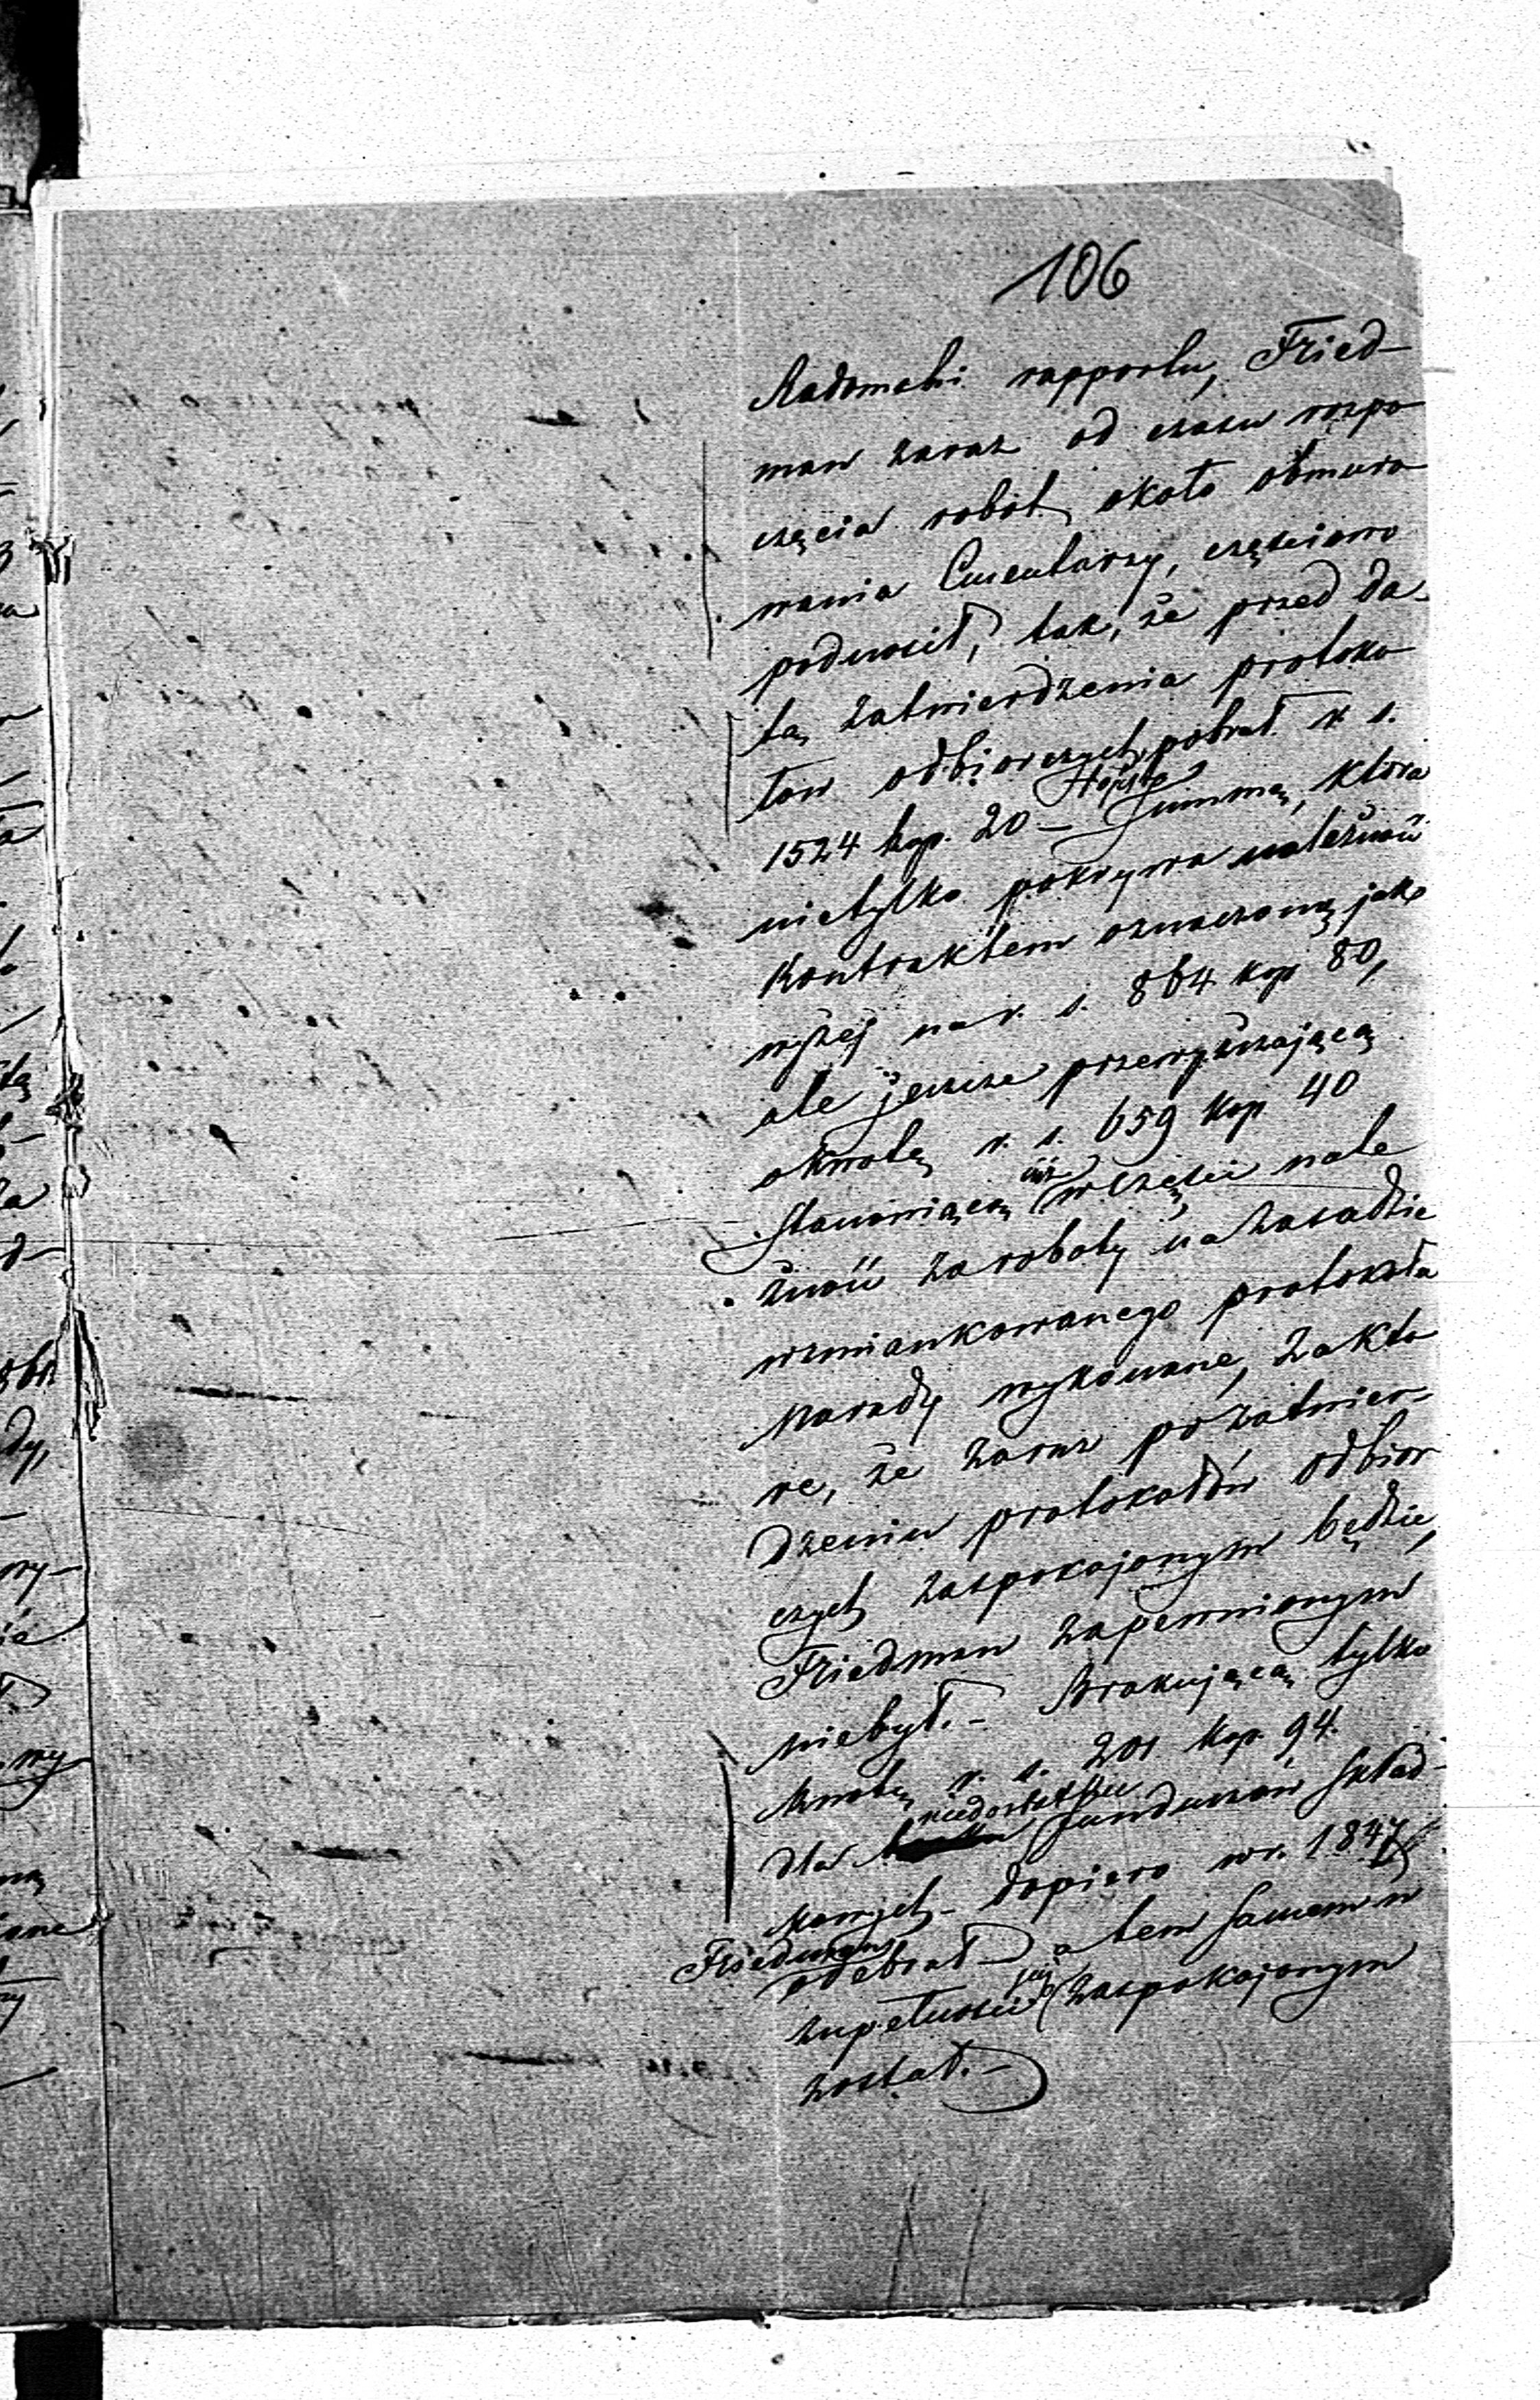 106
Radomski rapportu, Fried-
man zaraz od czasu rozpo
częcia robót około obmuro
wania Cmentarzy, częściowo
podnosił, tak, że przed da-
tą zatwierdzenia protoko
łów odbiorczych, pobrał r. s.
1524 kop. 20 – Summę, która
nietylko pokrywa należność
Kontraktem oznaczoną jak
wyżej na r. s. 864 kop 80,
ale jeszcze przewyższającą
okwotę r. s. 659 kop 40
Stanowiącą już w części nale
żność za roboty na zasadzie
wzmiankowanego protokoła
Narady wykonane, za któ
re, że zaraz po zatwier-
dzeniu protokołów odbior
czych zaspokojonym będzie,
Friedman zapewnionym
niebył. – Brakującą tylko
Kwotę r. s. 201 kop. 94.
dla niedostatku funduszów Skład-
kowych – dopiero w r. 1847
Friedman odebrał – a tem samem w
zupełności już zaspokojonym
został. –